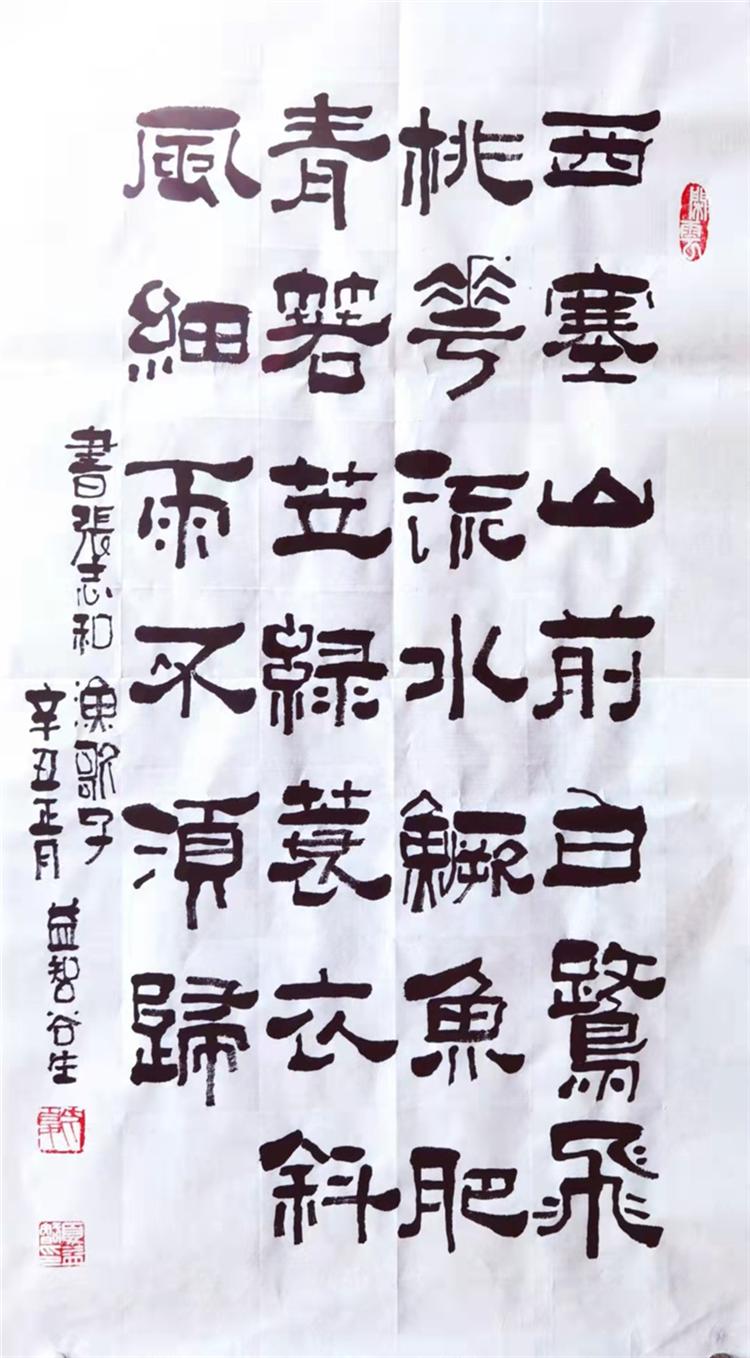 閑雲
西塞山前白鷺飛
桃華流水鱖魚肥
青箬苙綠蓑衣斜
風細雨不湏歸
書張志和 漁歌子
辛丑正月 益智谷生